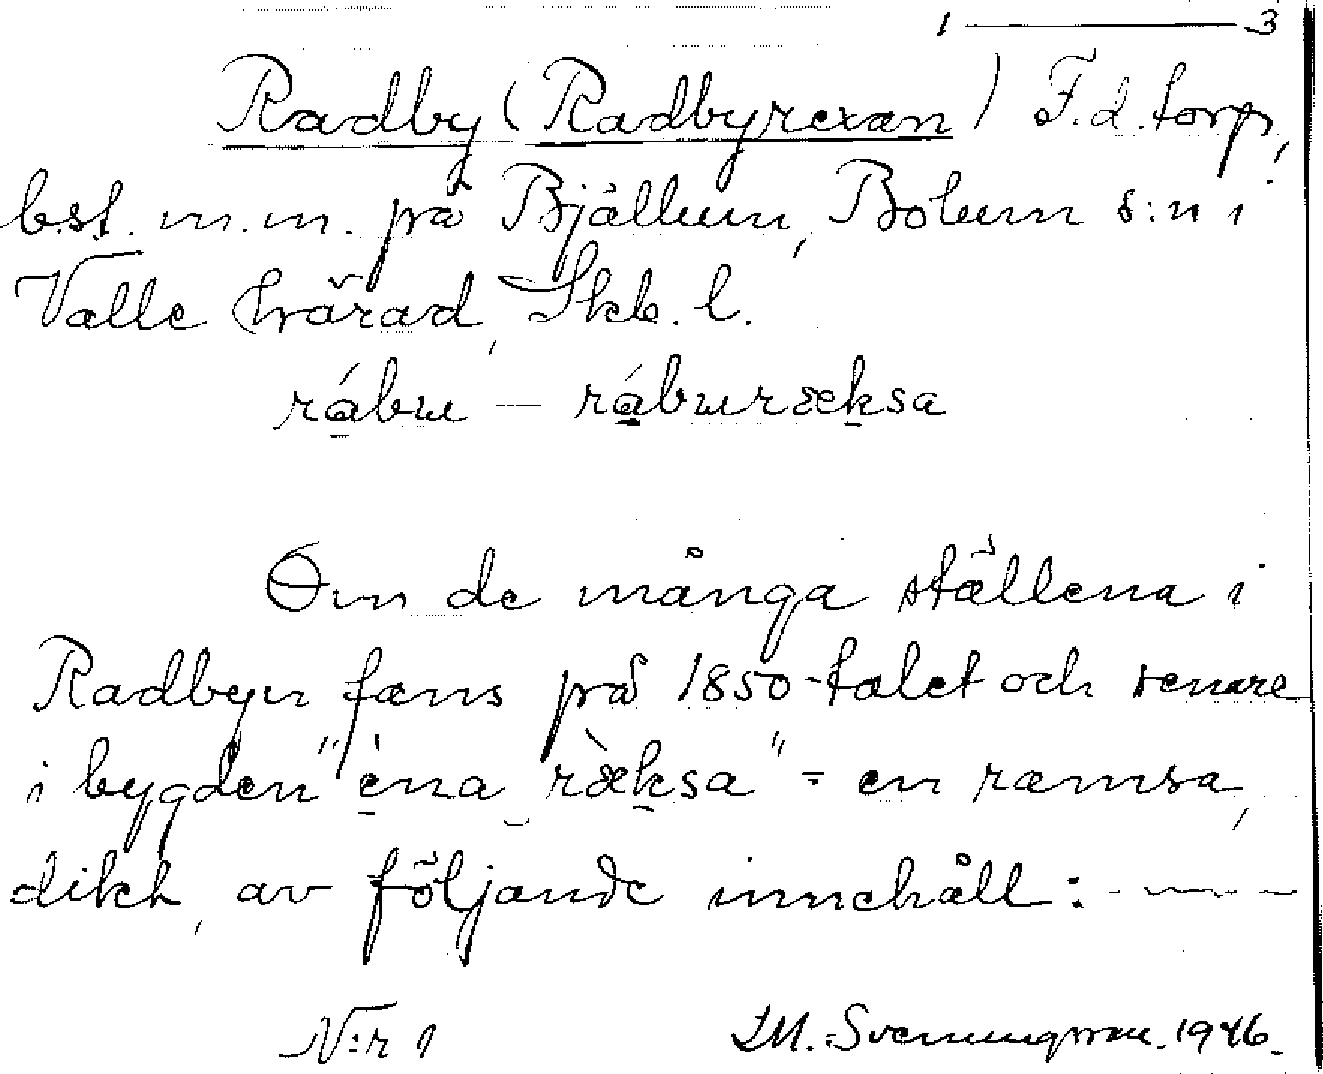 1 ——— 3
Radby (Radbyrexan) F.d. torp,
bst. m.m. på Bjällum, Bolum s:n i
Valle härad, Skb. l.
rábu – ráburæksa
Om de många ställena i
Radbyn fans på 1850-talet och senare
i bygden "èna ræ̀ksa" = en ramsa,
dikt, av följande innehåll: - — -
N:r 1
Svenungsson. 1946.